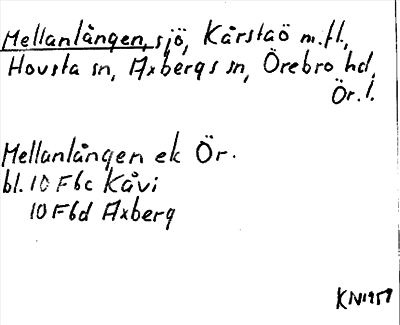 Mellanlången, sjö, Kårstaö m.fl.,
Hovsta sn, Axbergs sn, Örebro hd,
Ör. l.
Mellanlången ek Ör.
bl. 10 F6c Kåvi
10 F6d Axberg
KN1959